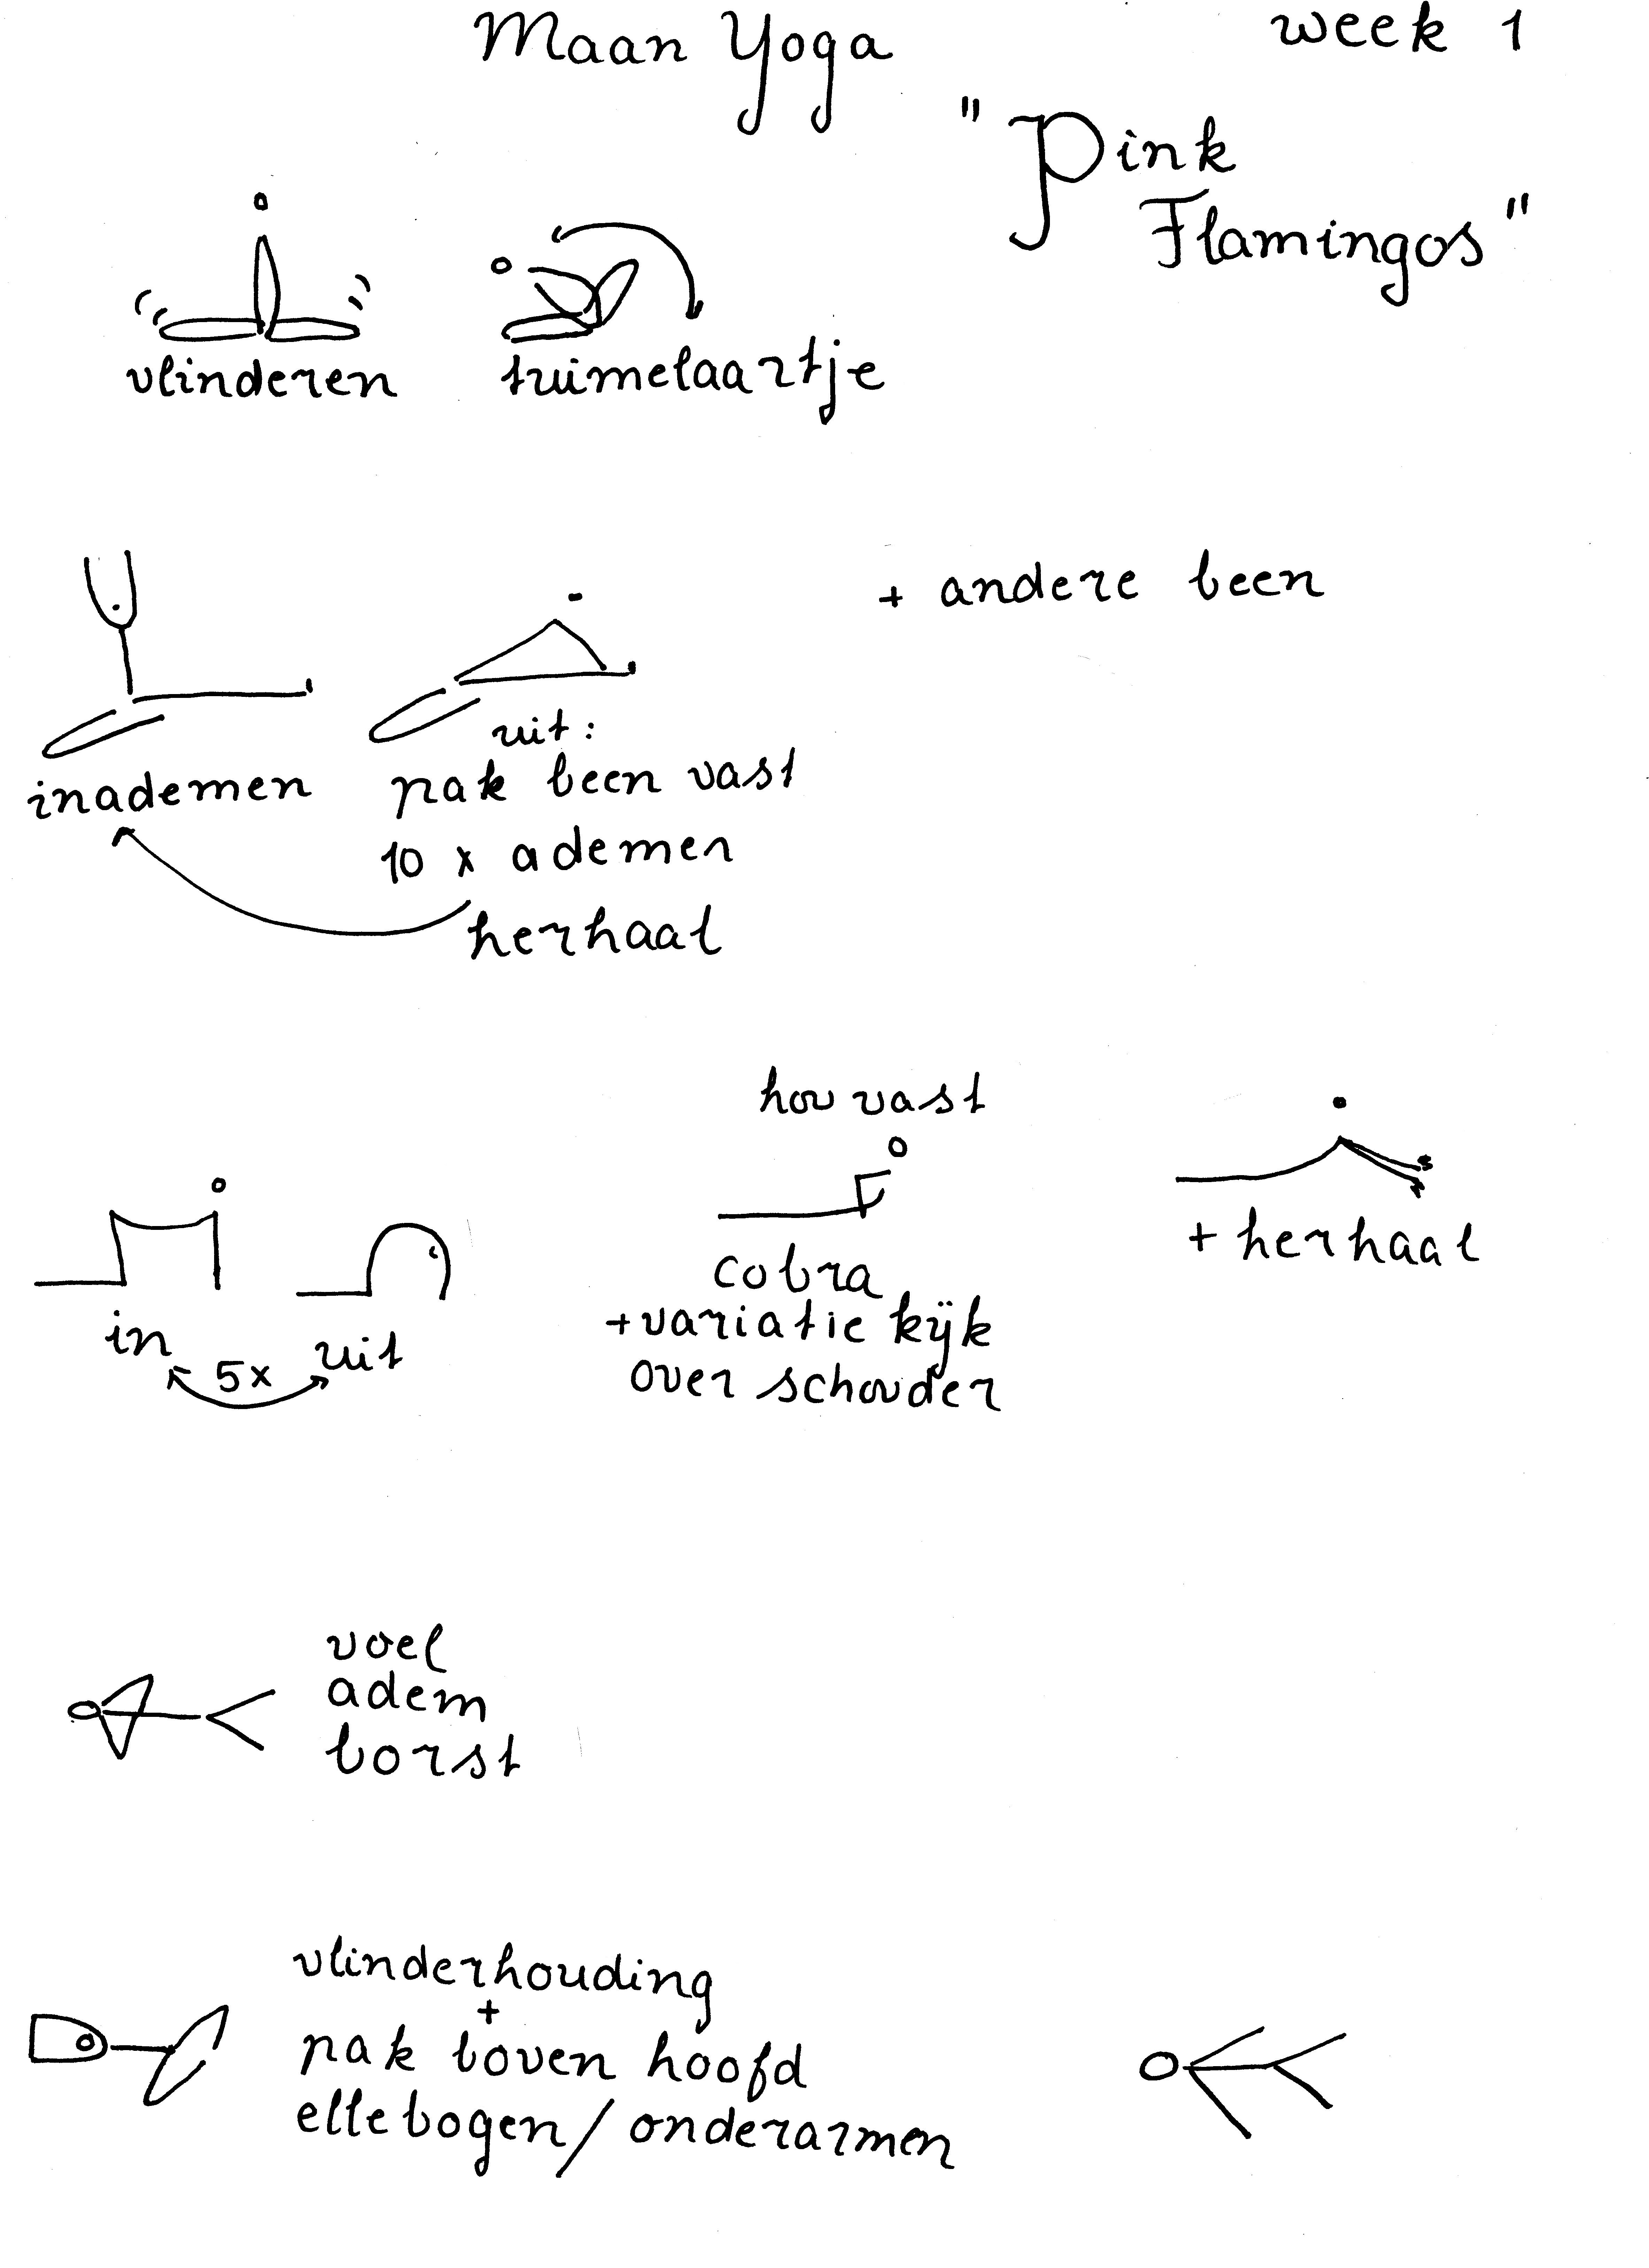 Maan Yoga
week 1
"Pink
Flamingos"
vlinderen
tuimelaartje
+ andere been
inademen
uit:
pak been vast
10 x ademen
herhaal
in
5x
uit
hou vast
cobra
+variatie kijk
over schouder
+ herhaal
voel
adem
borst
vlinderhouding
+
pak boven hoofd
ellebogen/onderarmen